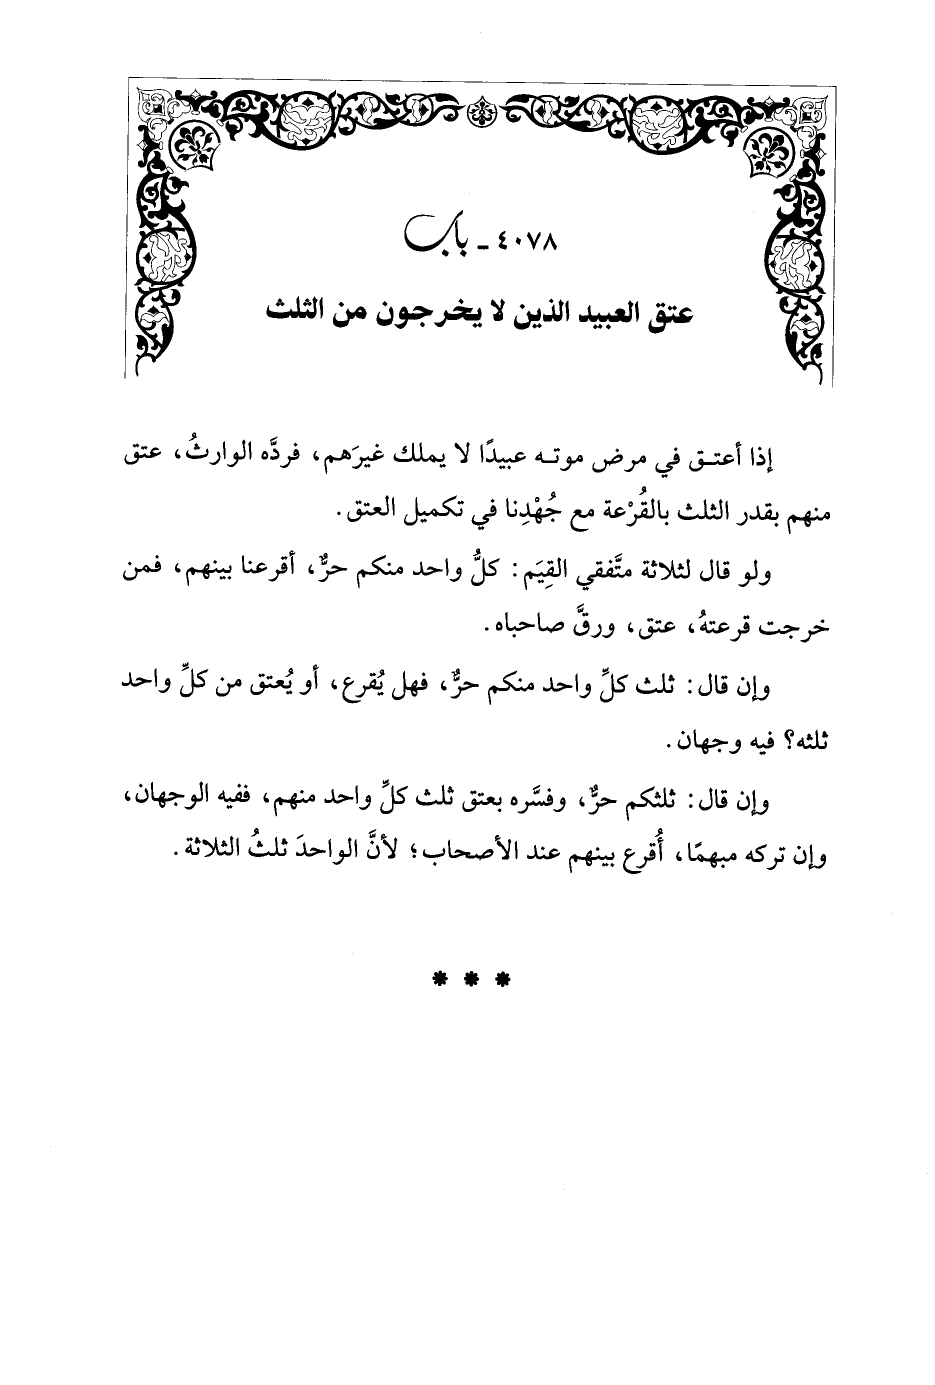 ٤٠٧٨ - باب
عتق العبيد الذين لا يخرجون من الثلث
إذا أعتـق في مرض موتـه عبيدًا لا يملك غيرَهم، فردَّه الوارثُ، عتق
منهم بقدر الثلث بالقُرْعة مع جُهْدِنا في تكميل العتق.
ولو قال لثلاثة متَّفقي القِيَم: كلُّ واحد منكم حرٌّ، أقرعنا بينهم، فمن
خرجت قرعتهُ، عتق، ورقَّ صاحباه.
وإن قال: ثلث كلِّ واحد منكم حرٌّ، فهل يُقرع، أو يُعتق من كلِّ واحد
ثلثه؟ فيه وجهان.
وإن قال: ثلثكم حرٌّ، وفسَّره بعتق ثلث كلِّ واحد منهم، ففيه الوجهان،
وإن تركه مبهمًا، أُقرع بينهم عند الأصحاب؛ لأنَّ الواحدَ ثلثُ الثلاثة.
* * *